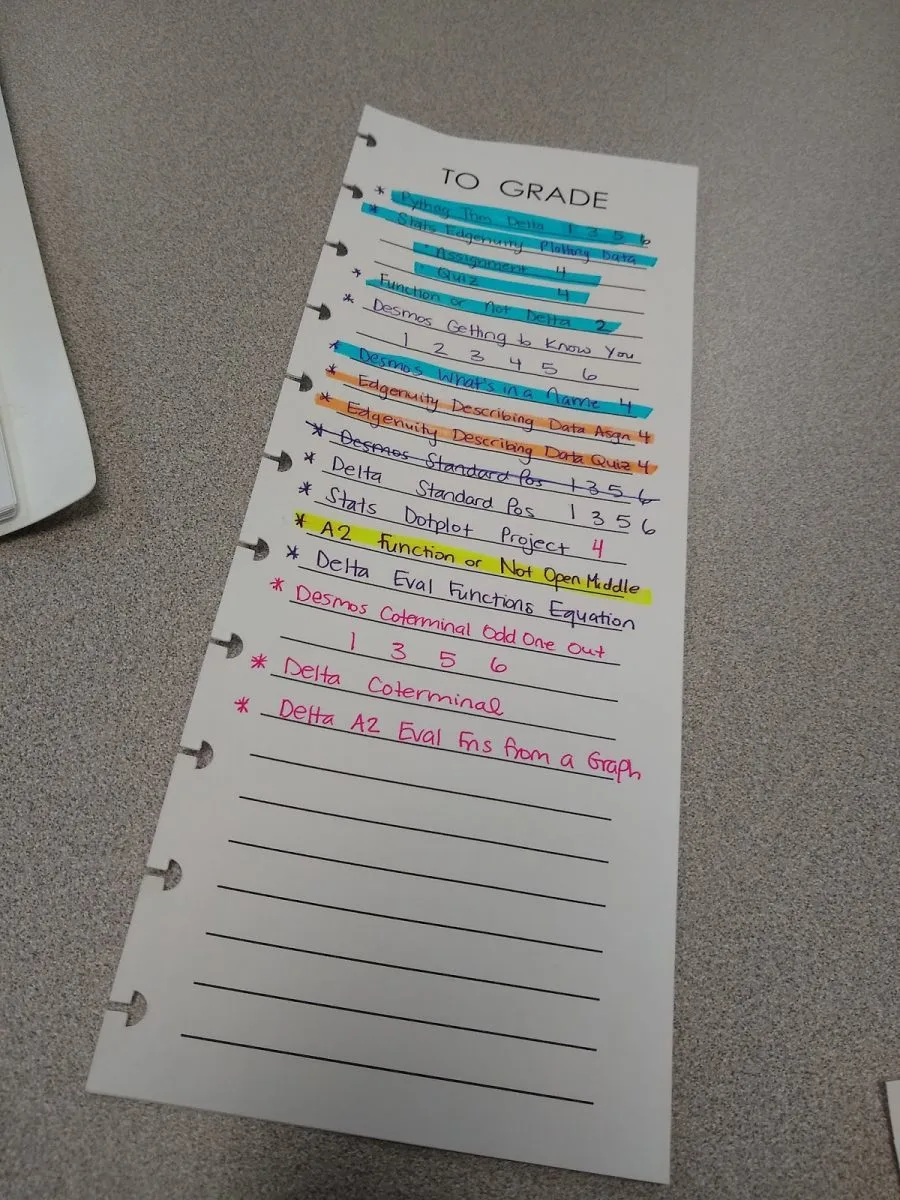 TO GRADE
* Pythag Thm Delta 1 3 5 6
* Stats Edgenuity Plotting Data
· Assignment 4
· Quiz 4
* Function or Not Delta 2
* Desmos Getting to Know You
1 2 3 4 5 6
* Desmos What's in a Name 4
* Edgenuity Describing Data Asgn 4
* Edgenuity Describing Data Quiz 4
* Desmos Standard Pos 1 3 5 6
* Delta Standard Pos 1 3 5 6
* Stats Dotplot Project 4
* A2 Function or Not Open Middle
* Delta Eval Functions Equation
* Desmos Coterminal Odd One Out
1 3 5 6
* Delta Coterminal
* Delta A2 Eval Fns from a Graph